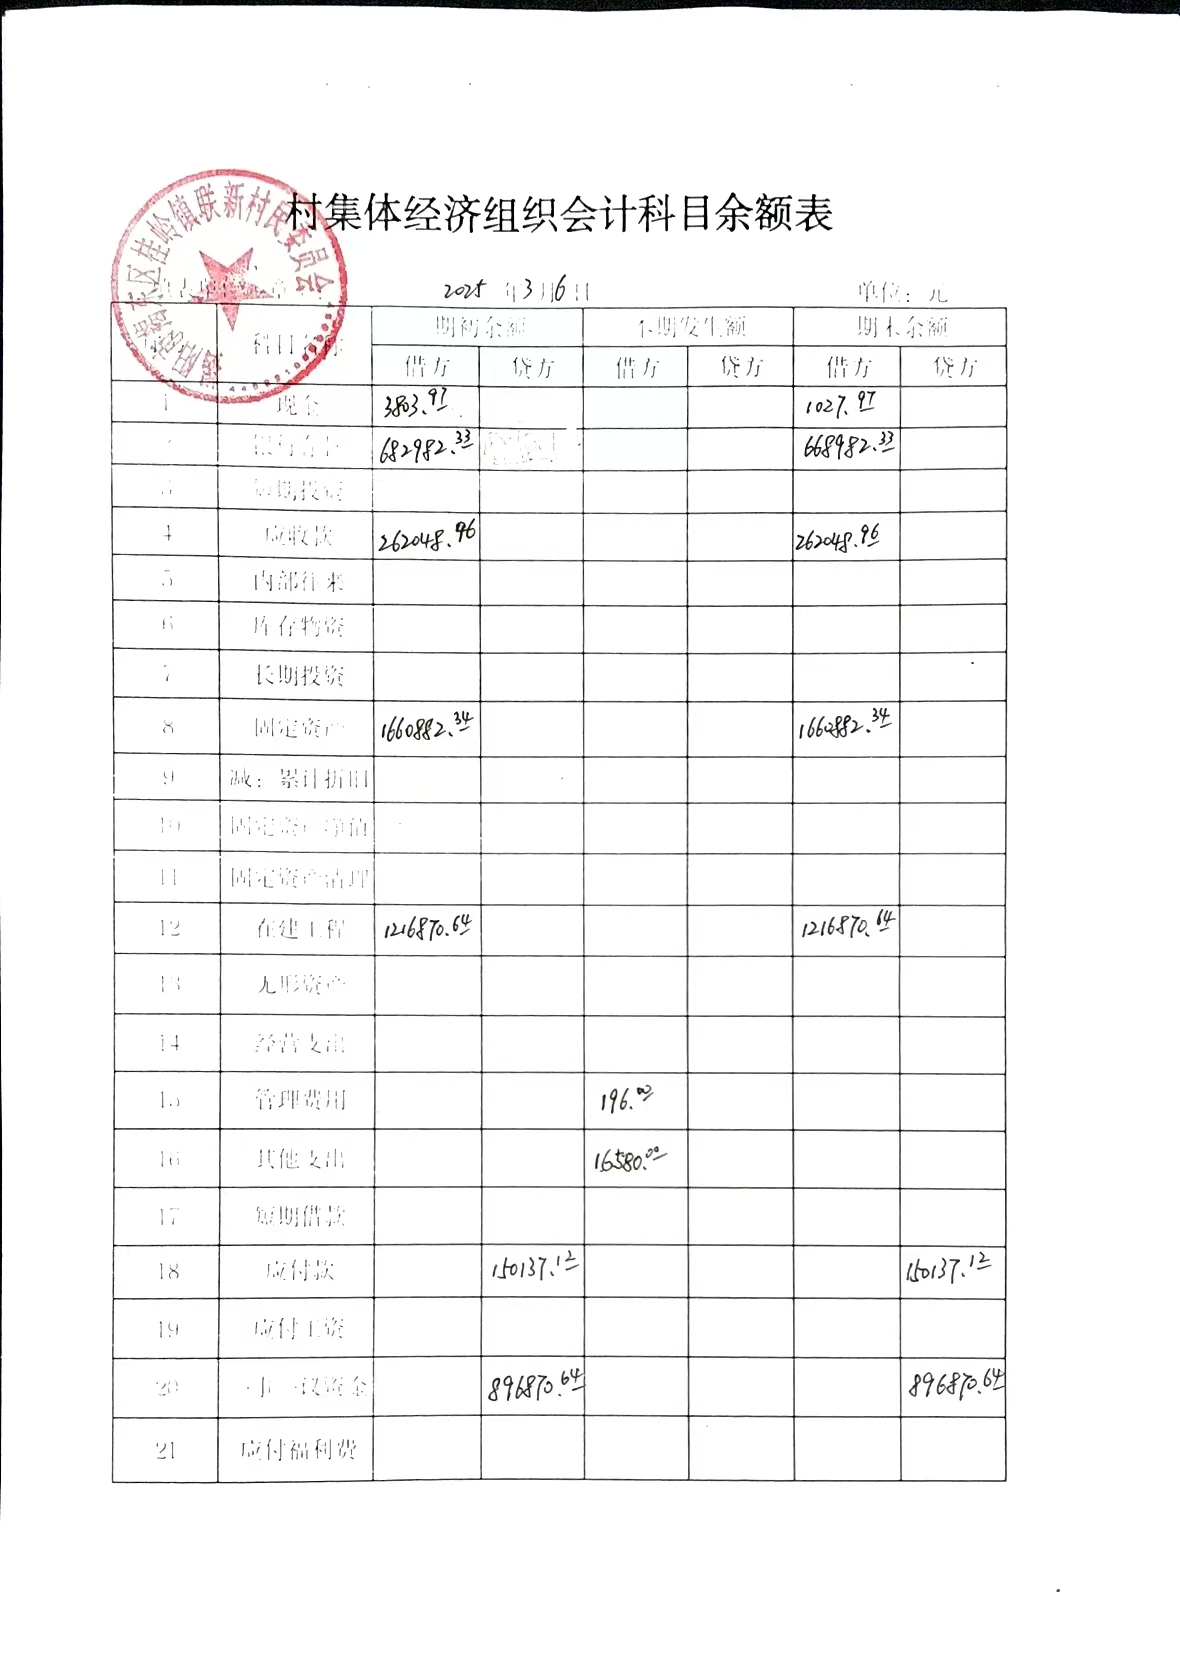 村集体经济组织会计科目余额表
2025年3月6日 单位：元
科目名称 期初余额 本期发生额 期末余额
借方 贷方 借方 贷方 借方 贷方
1 现金 3803.97 1027.97
银行存款 682982.33 668982.33
3 短期投资
4 应收款 262048.96 262048.96
5 内部往来
6 库存物资
7 长期投资
8 固定资产 1660882.34 1660882.34
9 减：累计折旧
10 固定资产净值
11 固定资产清理
12 在建工程 1216870.64 1216870.64
13 无形资产
14 经营支出
15 管理费用 196.00
16 其他支出 16580.00
17 短期借款
18 应付款 150137.12 150137.12
19 应付工资
20 一事一议资金 896870.64 896870.64
21 应付福利费